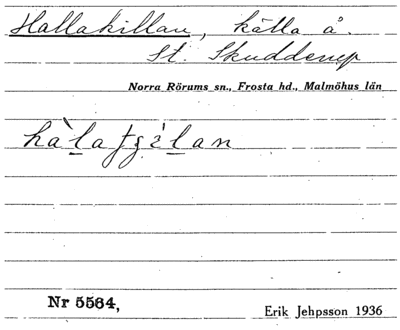 Hallakillan, källa å.
St. Skudderup
Norra Rörums sn., Frosta hd., Malmöhus län
Nr 5564,
Erik Jehpsson 1936